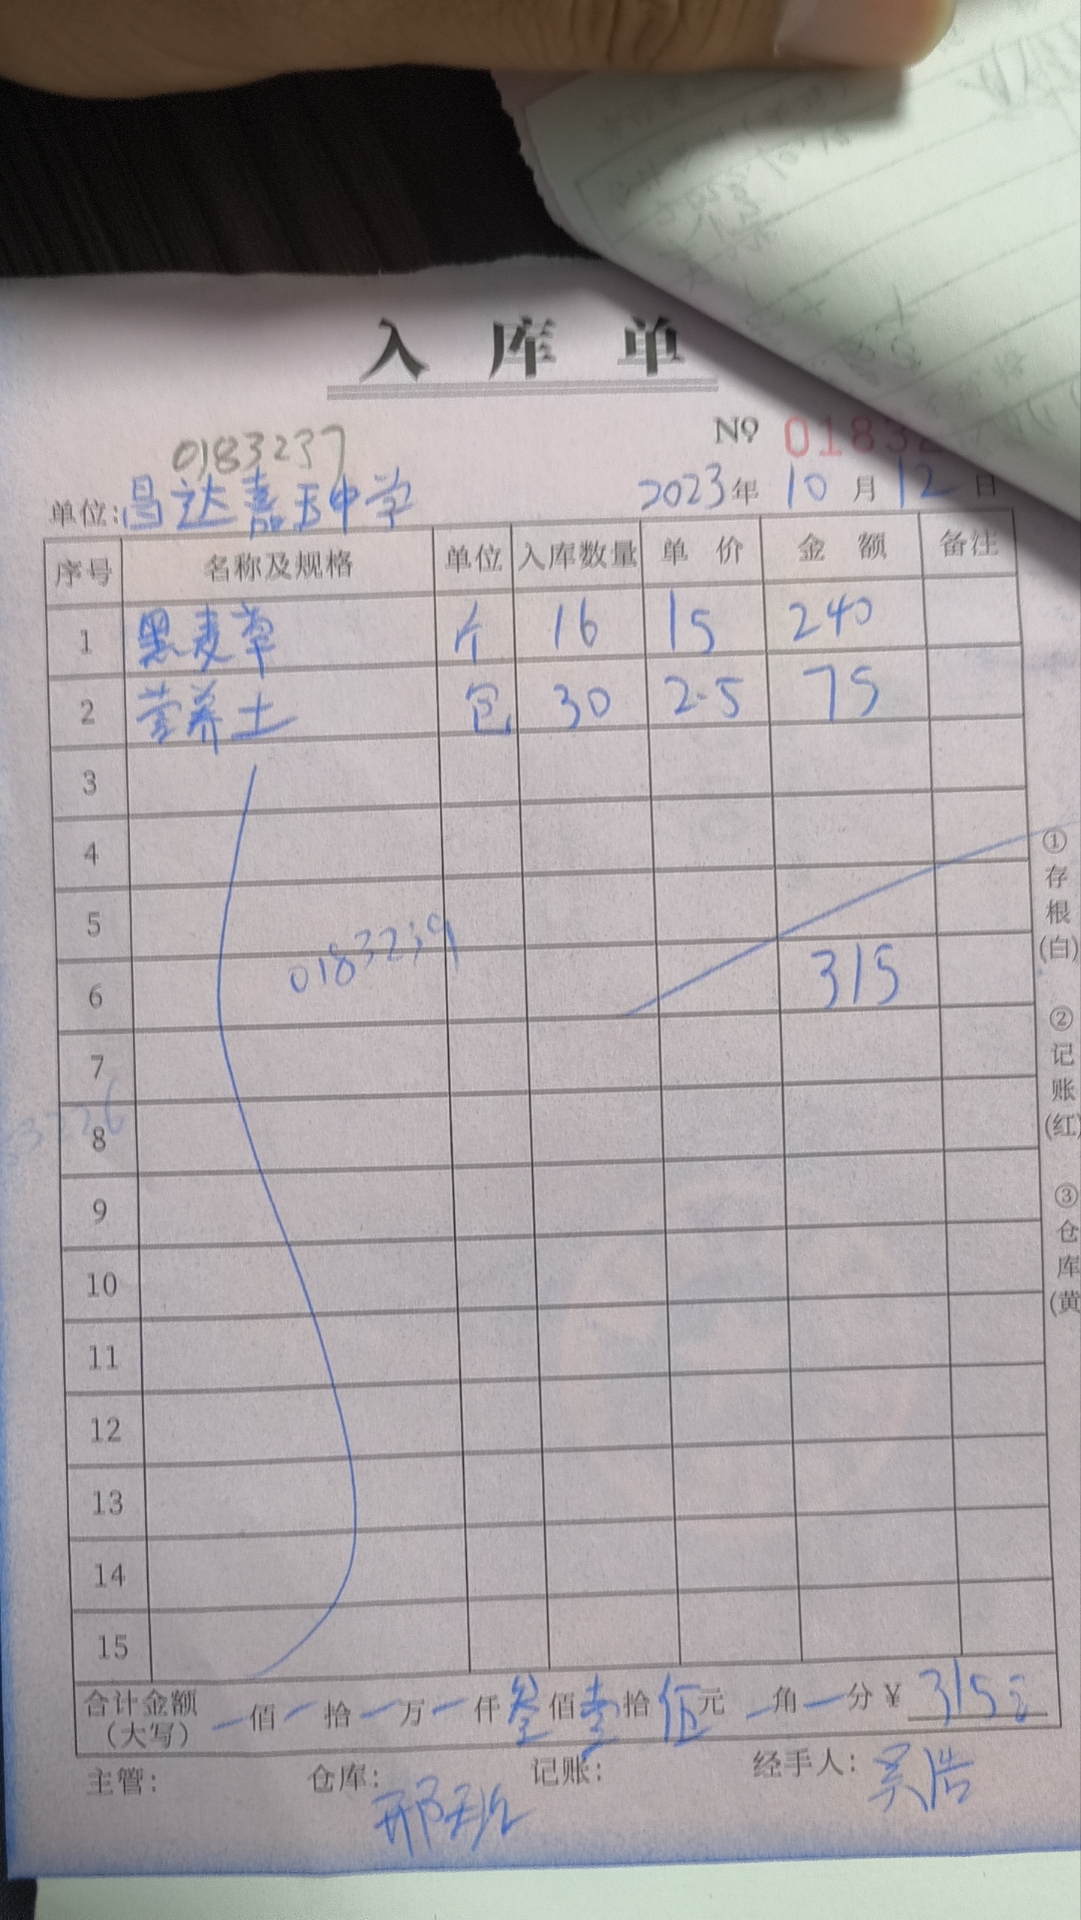 入库单
0183237
№ 01832
单位:昌达嘉玉中学 2023年10月12日
序号 名称及规格 单位 入库数量 单价 金额 备注
1 黑麦草 斤 16 15 240
2 营养土 包 30 2.5 75
3
4
5
0183239
6 315
7
8
9
10
11
12
13
14
15
合计金额(大写) 一佰一拾一万一仟叁佰壹拾伍元一角一分¥315元
主管: 仓库: 记账: 经手人:吴浩
①存根(白)
②记账(红)
③仓库(黄